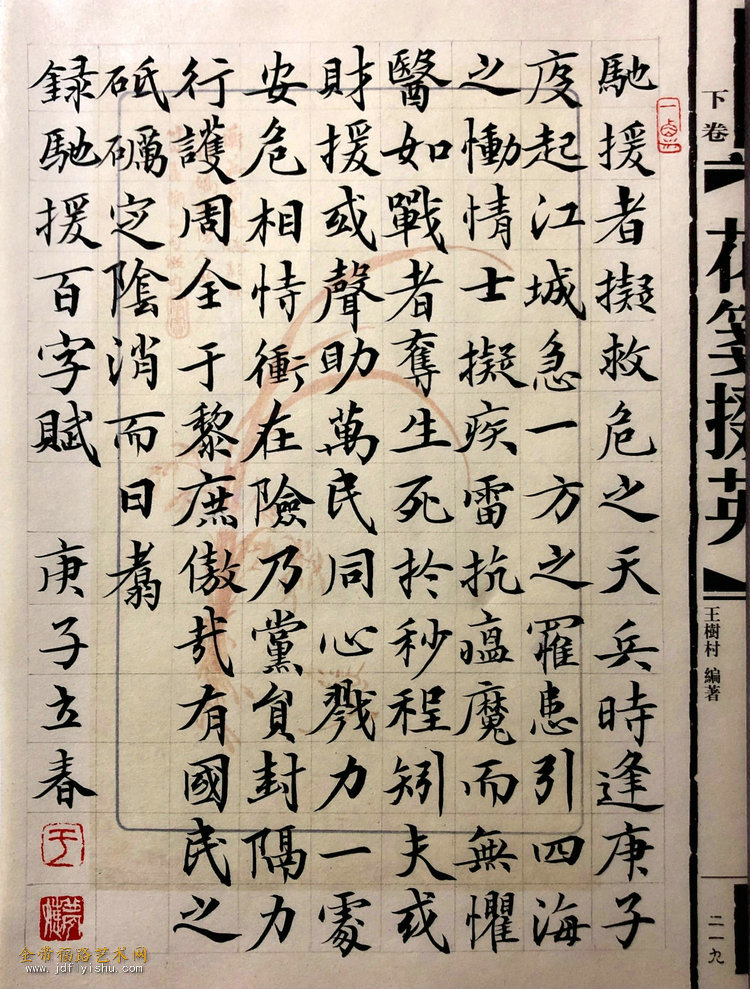 馳援者擬救危之天兵時逢庚子
疫起江城急一方之罹患引四海
之慟情士擬疾雷抗瘟魔而無懼
醫如戰者奪生死扵秒程矧夫或
財援或聲助萬民同心戮力一處
安危相恃衝在險乃黨員封隔力
行護周全于黎庶傲哉有國民之
砥礪定陰消而日翥
録馳援百字賦 庚子立春
下卷
花箋掇英
王樹村 編著
二一九
金带福路艺术网
www.jdflyishu.com